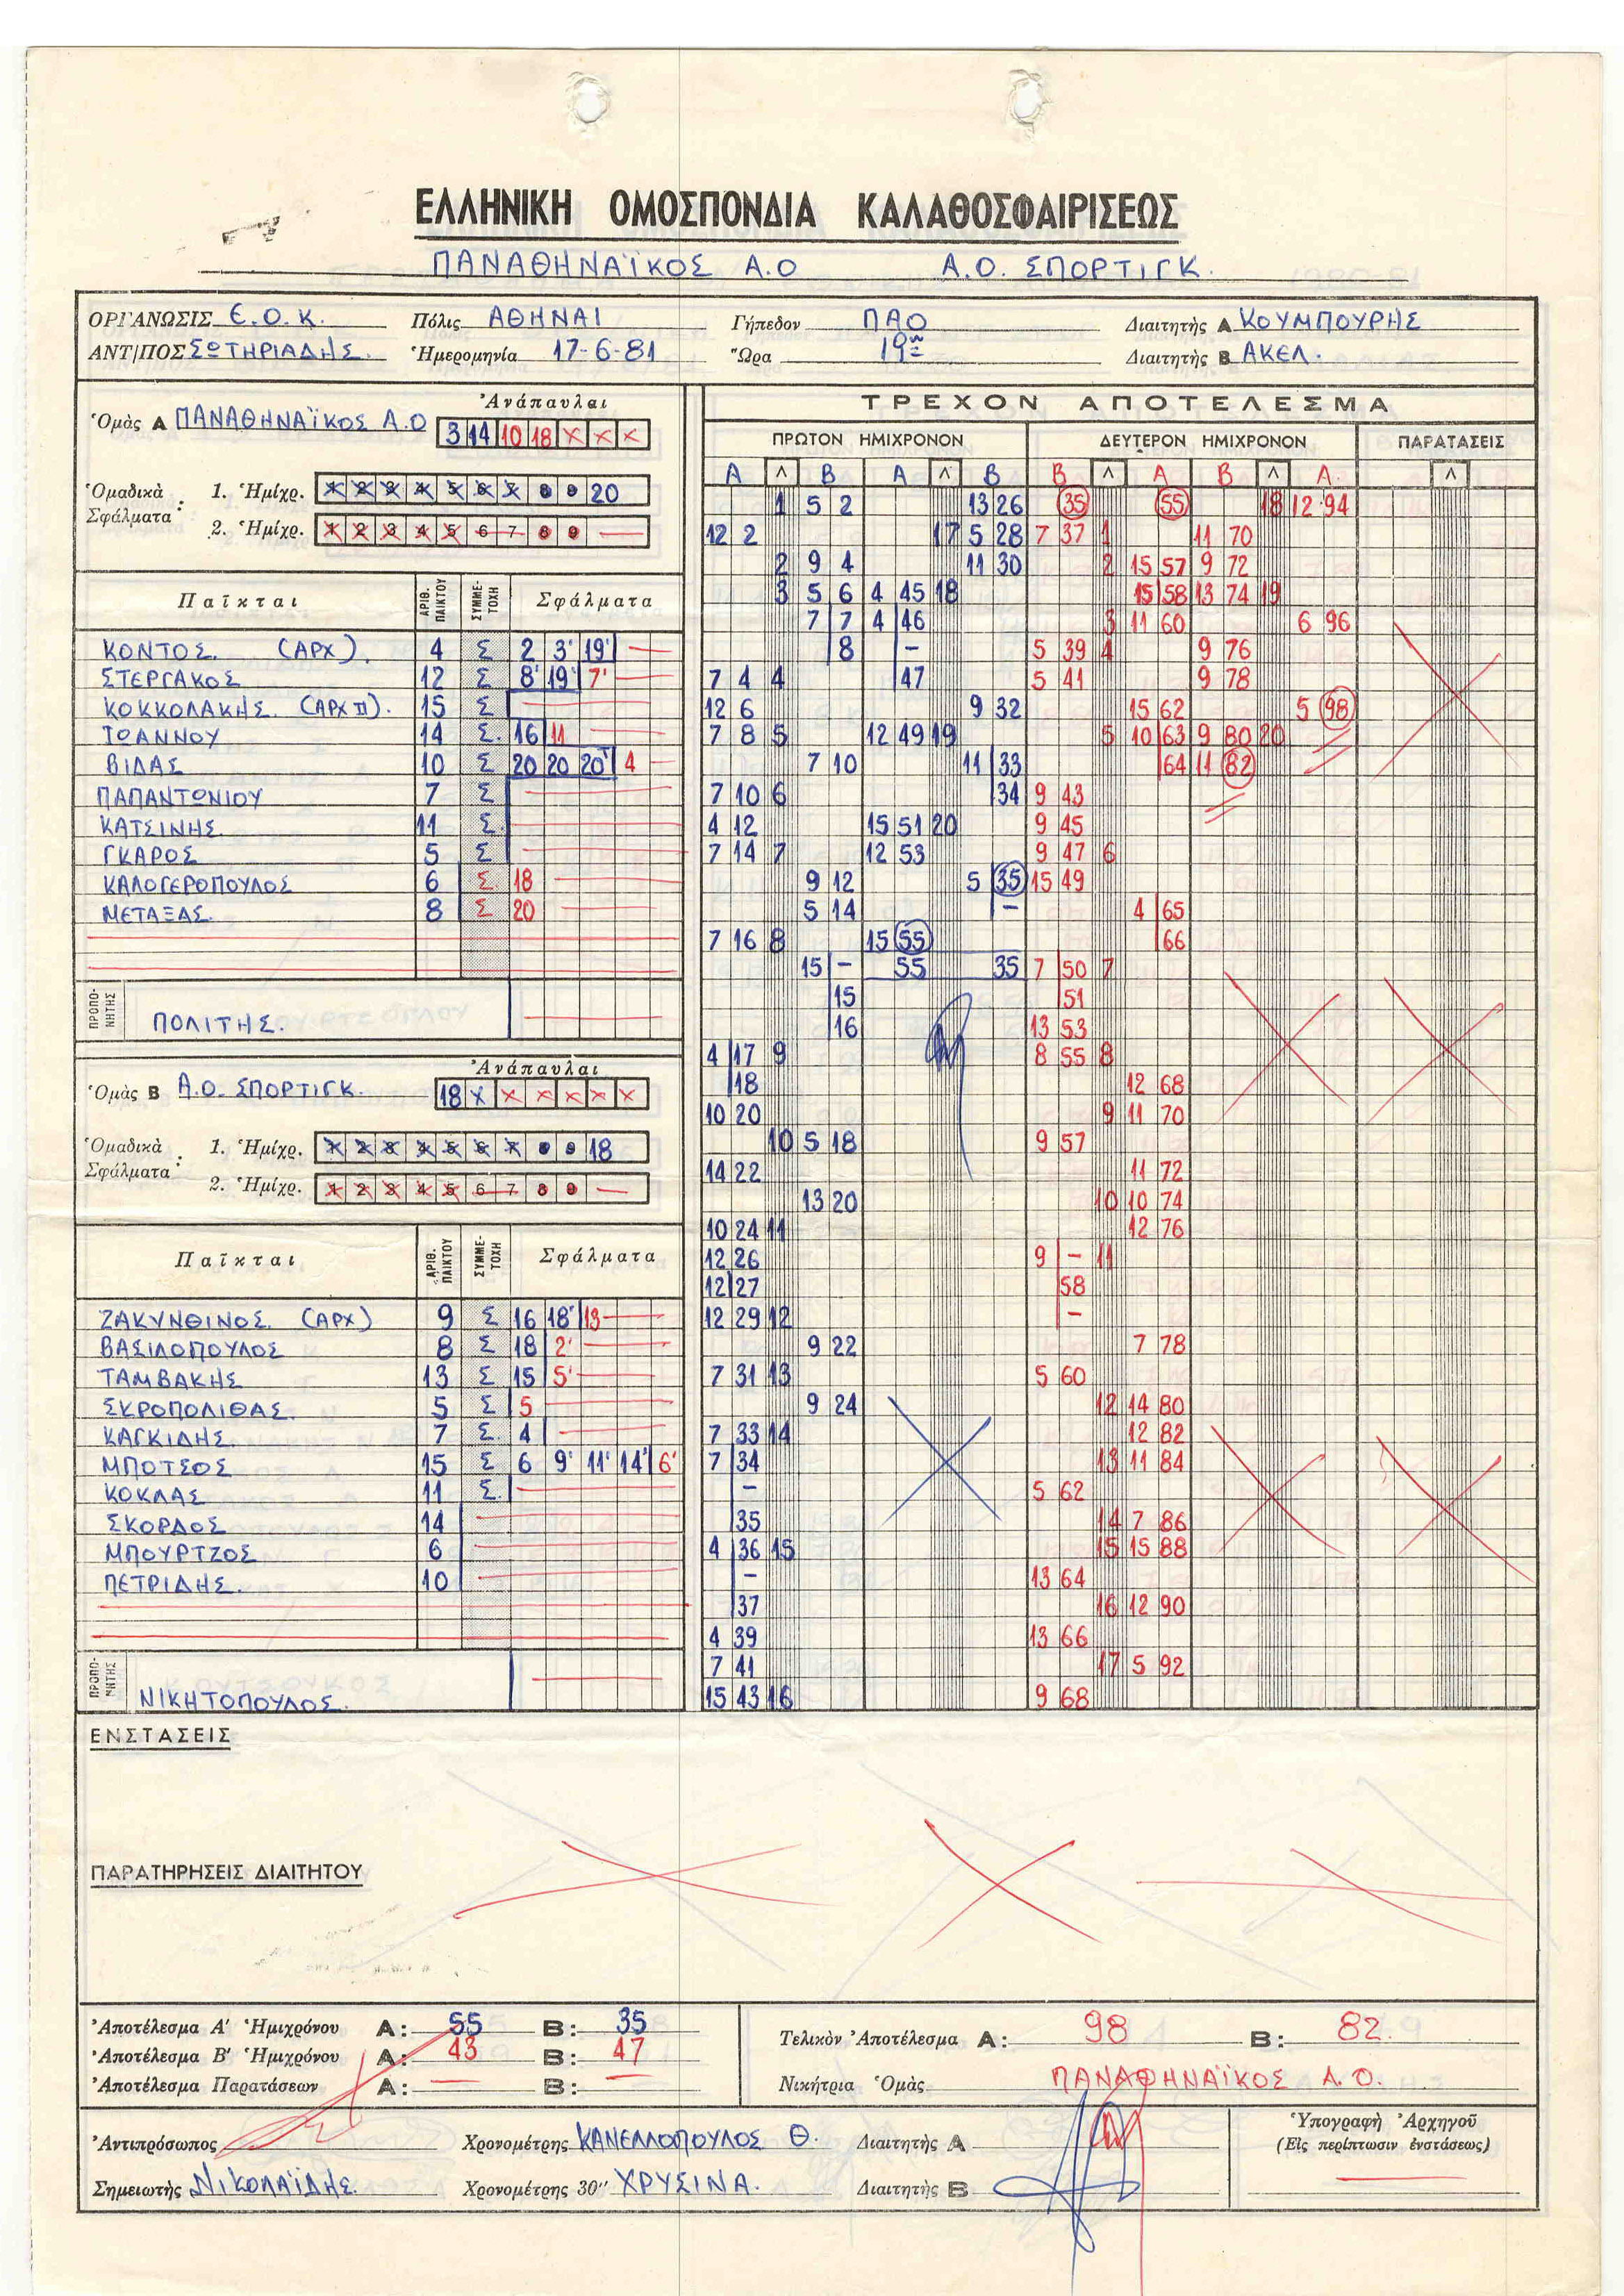 ΕΛΛΗΝΙΚΗ ΟΜΟΣΠΟΝΔΙΑ ΚΑΛΑΘΟΣΦΑΙΡΙΣΕΩΣ
ΠΑΝΑΘΗΝΑΪΚΟΣ Α.Ο Α.Ο. ΣΠΟΡΤΙΓΚ.
ΟΡΓΑΝΩΣΙΣ Ε.Ο.Κ. Πόλις ΑΘΗΝΑΙ Γήπεδον ΠΑΟ Διαιτητὴς Α ΚΟΥΜΠΟΥΡΗΣ
ΑΝΤ/ΠΟΣ ΣΩΤΗΡΙΑΔΗΣ. Ἡμερομηνία 17-6-81 Ὥρα 19 Διαιτητὴς Β ΑΚΕΛ.
Ὁμὰς Α ΠΑΝΑΘΗΝΑΪΚΟΣ Α.Ο Ἀνάπαυλαι 3 14 10 18 X X X
Ὁμαδικὰ Σφάλματα : 1. Ἡμίχρ. 1 2 3 4 5 6 7 8 9 20
2. Ἡμίχρ. 1 2 3 4 5 6 7 8 9 —
Παῖκται ΑΡΙΘ. ΠΑΙΚΤΟΥ ΣΥΜΜΕΤΟΧΗ Σφάλματα
ΚΟΝΤΟΣ. (ΑΡΧ). 4 Σ 2 3' 19'
ΣΤΕΡΓΑΚΟΣ 12 Σ 8' 19' 7'
ΚΟΚΚΟΛΑΚΗΣ. (ΑΡΧ ΙΙ). 15 Σ
ΙΩΑΝΝΟΥ 14 Σ. 16 11
ΒΙΔΑΣ 10 Σ 20 20 20 4
ΠΑΠΑΝΤΩΝΙΟΥ 7 Σ
ΚΑΤΣΙΝΗΣ 11 Σ.
ΓΚΑΡΟΣ 5 Σ
ΚΑΛΟΓΕΡΟΠΟΥΛΟΣ 6 Σ 18
ΜΕΤΑΞΑΣ. 8 Σ 20
ΠΡΟΠΟΝΗΤΗΣ ΠΟΛΙΤΗΣ.
Ὁμὰς Β Α.Ο. ΣΠΟΡΤΙΓΚ. Ἀνάπαυλαι 18 X X X X X X
Ὁμαδικὰ Σφάλματα : 1. Ἡμίχρ. 1 2 3 4 5 6 7 8 9 18
2. Ἡμίχρ. 1 2 3 4 5 6 7 8 9 —
Παῖκται ΑΡΙΘ. ΠΑΙΚΤΟΥ ΣΥΜΜΕΤΟΧΗ Σφάλματα
ΖΑΚΥΝΘΙΝΟΣ. (ΑΡΧ) 9 Σ 16 18' 13
ΒΑΣΙΛΟΠΟΥΛΟΣ 8 Σ 18 2'
ΤΑΜΒΑΚΗΣ 13 Σ 15 5'
ΣΚΡΟΠΟΛΙΘΑΣ. 5 Σ 5
ΚΑΓΚΙΔΗΣ. 7 Σ. 4
ΜΠΟΤΣΟΣ 15 Σ 6 9' 11' 14' 6'
ΚΟΚΛΑΣ 11 Σ.
ΣΚΟΡΔΟΣ 14
ΜΠΟΥΡΤΖΟΣ 6
ΠΕΤΡΙΔΗΣ. 10
ΠΡΟΠΟΝΗΤΗΣ ΝΙΚΗΤΟΠΟΥΛΟΣ.
ΤΡΕΧΟΝ ΑΠΟΤΕΛΕΣΜΑ
ΠΡΩΤΟΝ ΗΜΙΧΡΟΝΟΝ ΔΕΥΤΕΡΟΝ ΗΜΙΧΡΟΝΟΝ ΠΑΡΑΤΑΣΕΙΣ
Α Λ Β Α Λ Β Β Λ Α Β Λ Α. Λ
1 5 2 13 26 35 55 18 12 94
12 2 17 5 28 7 37 1 11 70
2 9 4 11 30 2 15 57 9 72
3 5 6 4 45 18 15 58 13 74 19
7 7 4 46 3 11 60 6 96
8 – 5 39 4 9 76
7 4 4 47 5 41 9 78
12 6 9 32 15 62 5 98
7 8 5 12 49 19 5 10 63 9 80 20
7 10 11 33 64 11 82
7 10 6 34 9 43
4 12 15 51 20 9 45
7 14 7 12 53 9 47 6
9 12 5 35 15 49
5 14 – 4 65
7 16 8 15 55 66
15 – 55 35 7 50 7
15 51
16 13 53
4 17 9 8 55 8
18 12 68
10 20 9 11 70
10 5 18 9 57
14 22 11 72
13 20 10 10 74
10 24 11 12 76
12 26 9 – 11
12 27 58
12 29 12 –
9 22 7 78
7 31 13 5 60
9 24 12 14 80
7 33 14 12 82
7 34 13 11 84
– 5 62
35 14 7 86
4 36 15 15 15 88
– 13 64
37 16 12 90
4 39 13 66
7 41 17 5 92
15 43 16 9 68
ΕΝΣΤΑΣΕΙΣ
ΠΑΡΑΤΗΡΗΣΕΙΣ ΔΙΑΙΤΗΤΟΥ
Ἀποτέλεσμα Α' Ἡμιχρόνου Α: 55 Β: 35
Ἀποτέλεσμα Β' Ἡμιχρόνου Α: 43 Β: 47
Ἀποτέλεσμα Παρατάσεων Α: — Β: —
Τελικὸν Ἀποτέλεσμα Α: 98 Β: 82.
Νικήτρια Ὁμὰς ΠΑΝΑΘΗΝΑΪΚΟΣ Α.Ο.
Ἀντιπρόσωπος Χρονομέτρης ΚΑΝΕΛΛΟΠΟΥΛΟΣ Θ. Διαιτητὴς Α
Σημειωτὴς ΝΙΚΟΛΑΪΔΗΣ. Χρονομέτρης 30" ΧΡΥΣΙΝΑ. Διαιτητὴς Β
Ὑπογραφὴ Ἀρχηγοῦ
(Εἰς περίπτωσιν ἐνστάσεως)